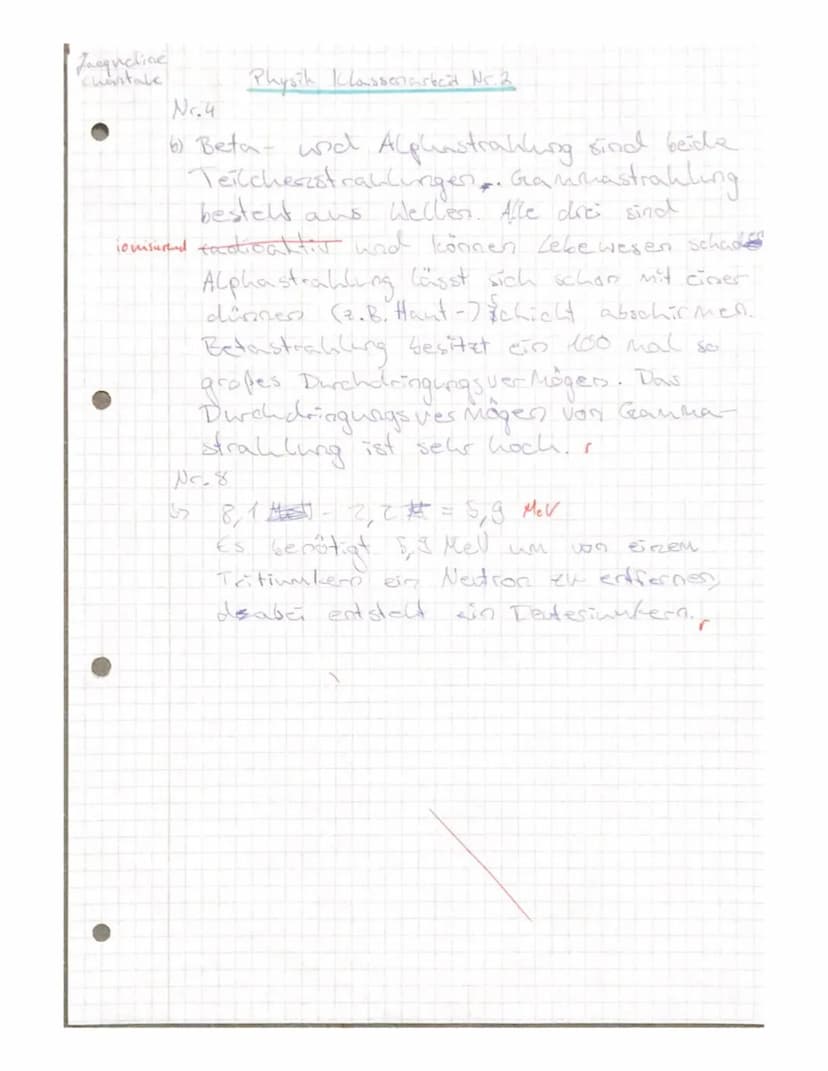 Jacqueline
Physik Klassenarbeit Nr.2
Nr.4
b) Beta- und Alphastrahlung sind beide
Teilchenstrahlungen. Gammastrahlung
besteht aus Wellen. Alle drei sind
ionisierend radioaktiv und können Lebewesen schaden
Alphastrahlung lässt sich schon mit einer
dünnen (z.B. Haut-) Schicht abschirmen.
Betastrahlung besitzt ein 100 mal so
großes Durchdringungsvermögen. Das
Durchdringungsvermögen von Gamma-
strahlung ist sehr hoch. r
Nr.8
b) 8,1 - 2,2 = 5,9 MeV
Es benötigt 5,9 MeV um von einem
Tritiumkern ein Neutron zu entfernen,
dabei entsteht ein Deuteriumkern. r